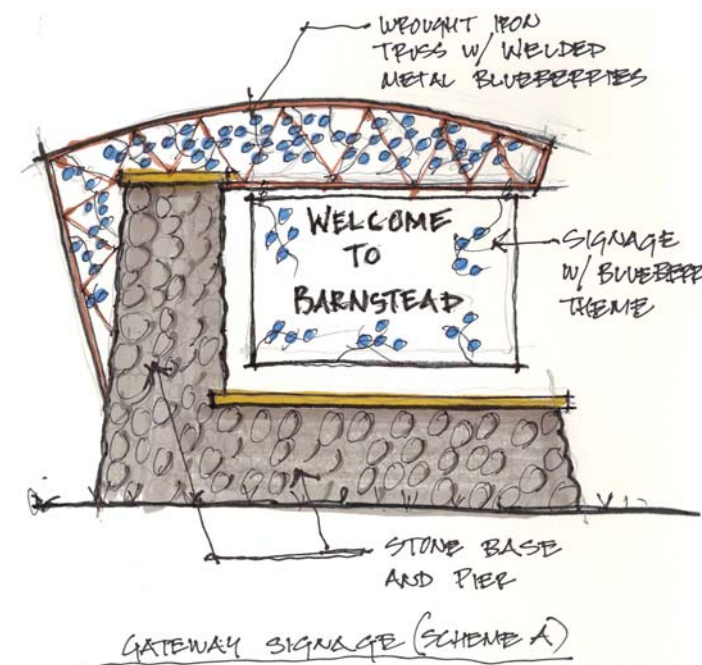 WROUGHT IRON
TRUSS W/ WELDED
METAL BLUEBERRIES
WELCOME
TO
BARNSTEAD
SIGNAGE
W/ BLUEBERR
THEME
STONE BASE
AND PIER
GATEWAY SIGNAGE (SCHEME A)